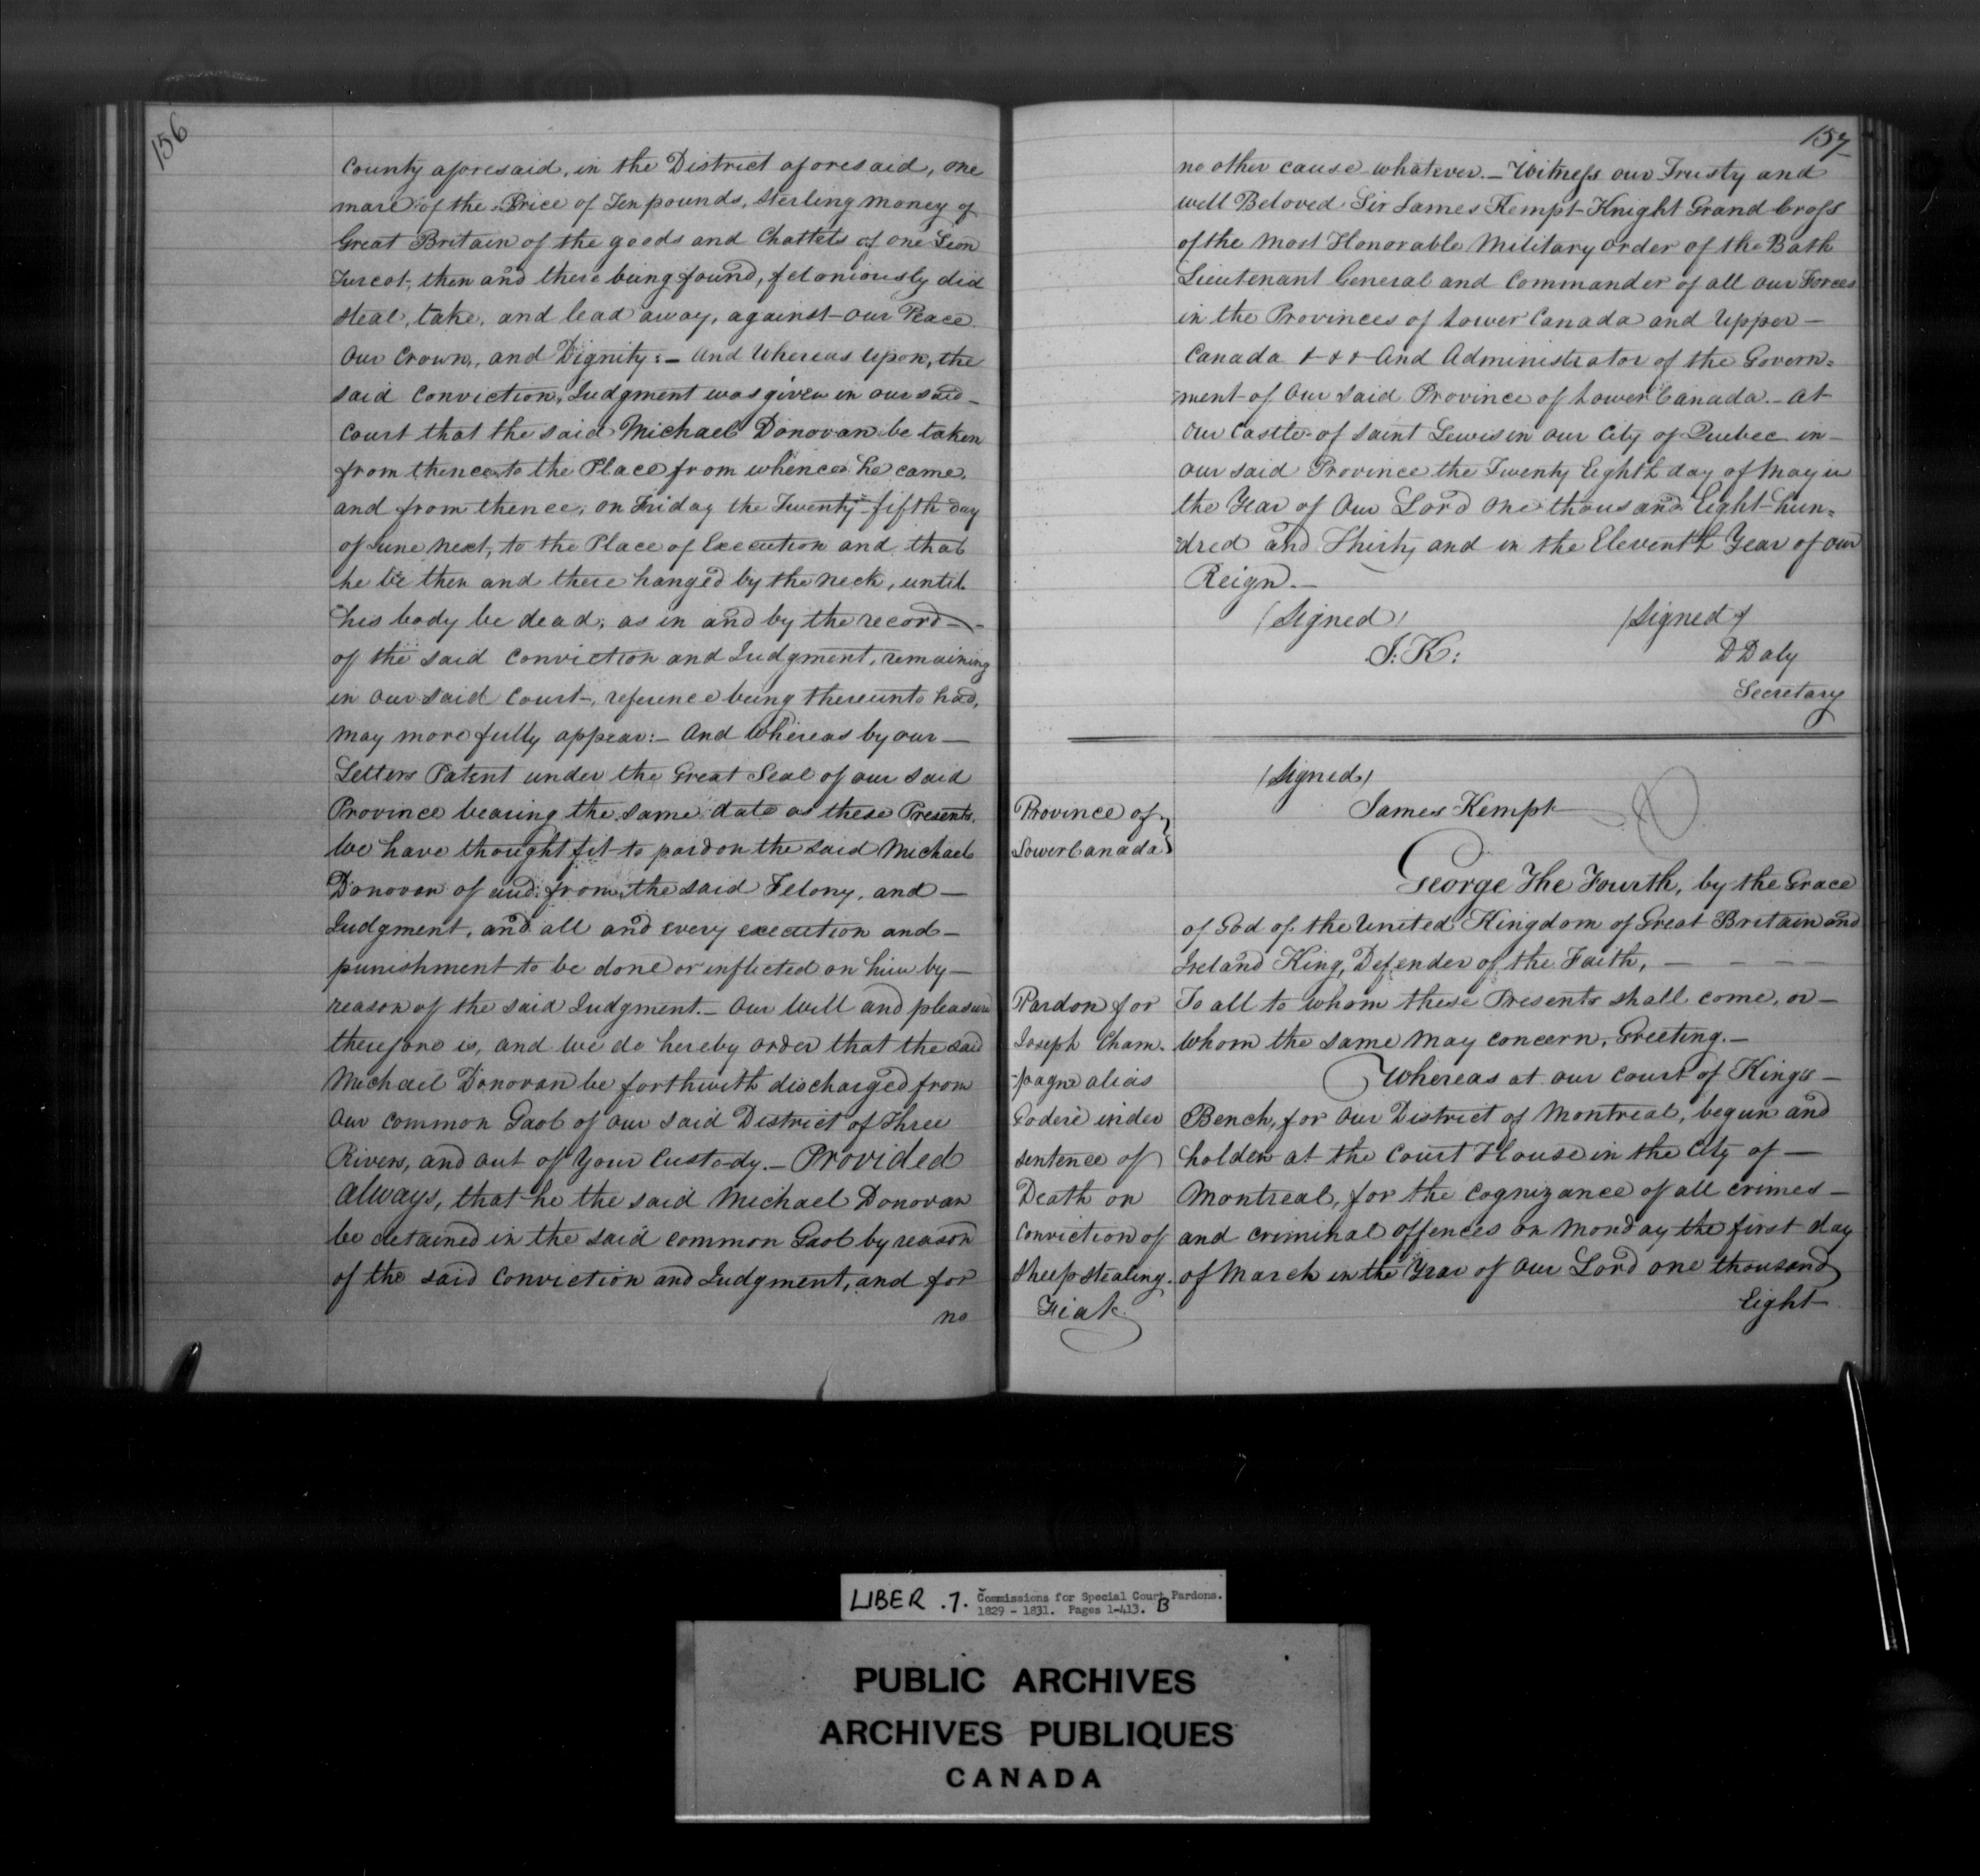 156
County aforesaid, in the District aforesaid, one
mare of the Price of Ten pounds, Sterling money of
Great Britain of the goods and Chattels of one Leon
Turcot, then and there being found, feloniously did
steal, take, and lead away, against our Peace
Our Crown, and Dignity:— And Whereas upon, the
said Conviction, Judgment was given in our said—
Court that the said Michael Donovan be taken
from thence to the Place from whence he came,
and from thence, on Friday the Twenty-fifth day
of June next, to the Place of Execution and that
he be then and there hanged by the neck, until
his body be dead, as in and by the record—
of the said Conviction and Judgment, remaining
in our said Court, reference being thereunto had,
may more fully appear:— And Whereas by our—
Letters Patent under the Great Seal of our said
Province bearing the same date as these Presents,
We have thought fit to pardon the said Michael
Donovan of and from the said Felony, and—
Judgment, and all and every execution and—
punishment to be done or inflicted on him by—
reason of the said Judgment.— Our Will and pleasure
therefore is, and we do hereby order that the said
Michael Donovan be forthwith discharged from
our common Gaol of our said District of Three
Rivers, and out of Your Custody.— Provided
always, that he the said Michael Donovan
be detained in the said common Gaol by reason
of the said Conviction and Judgment, and for
no
157
no other cause whatever.— Witness our Trusty and
well Beloved Sir James Kempt Knight Grand Cross
of the most Honorable Military Order of the Bath
Lieutenant General and Commander of all our Forces
in the Provinces of Lower Canada and Upper—
Canada & & & And Administrator of the Govern=
=ment of Our said Province of Lower Canada.— At
Our Castle of Saint Lewis in our City of Quebec in—
our said Province the Twenty Eighth day of May in
the Year of Our Lord One thousand Eight hun=
=dred and Thirty and in the Eleventh Year of our
Reign.—
/Signed/ /Signed/
J: K: D Daly
Secretary
/Signed/
James Kempt
Province of
Lower Canada
George The Fourth, by the Grace
of God of the United Kingdom of Great Britain and
Ireland King, Defender of the Faith, — — — —
Pardon for
Joseph Cham-
-pagne alias
Goderé under
sentence of
Death on
Conviction of
Sheep Stealing.
Fiat
To all to whom these Presents shall come, or—
whom the same may concern, Greeting.—
Whereas at our Court of King's—
Bench, for our District of Montreal, begun and
holden at the Court House in the City of—
Montreal, for the Cognizance of all crimes—
and criminal offences on Monday the first day
of March in the Year of Our Lord one thousand
Eight
LIBER .7. Commissions for Special Court Pardons.
1829 - 1831. Pages 1-413. B
PUBLIC ARCHIVES
ARCHIVES PUBLIQUES
CANADA